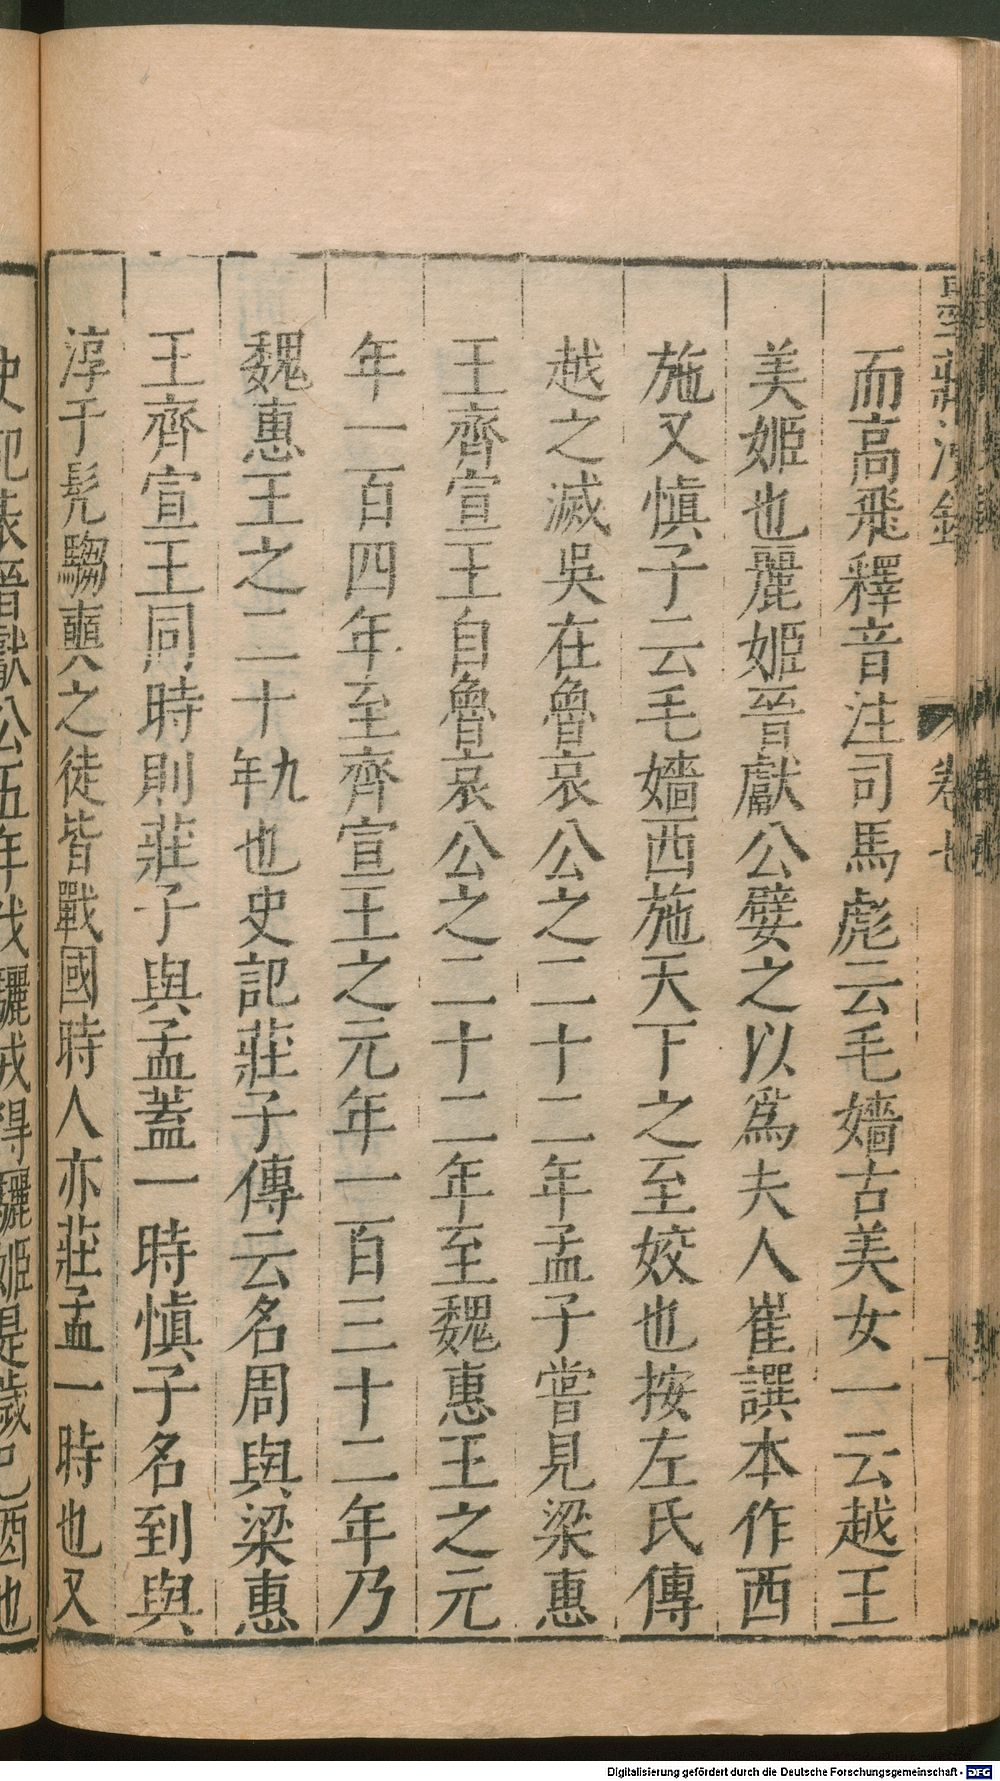 而高飛釋音注司馬彪云毛嬙古美女一云越王
美姬也麗姬晉獻公嬖之以爲夫人崔譔本作西
施又愼子云毛嬙西施天下之至姣也按左氏傳
越之滅吳在魯哀公之二十二年孟子嘗見梁惠
王齊宣王自魯哀公之二十二年至魏惠王之元
年一百四年至齊宣王之元年一百三十二年乃
魏惠王之二十九年也史記莊子傳云名周與梁惠
王齊宣王同時則莊子與孟蓋一時愼子名到與
淳于髡騶奭之徒皆戰國時人亦莊孟一時也又
史記表晉獻公五年伐驪戎得驪姬是歲己酉也
Digitalisierung gefördert durch die Deutsche Forschungsgemeinschaft - DFG